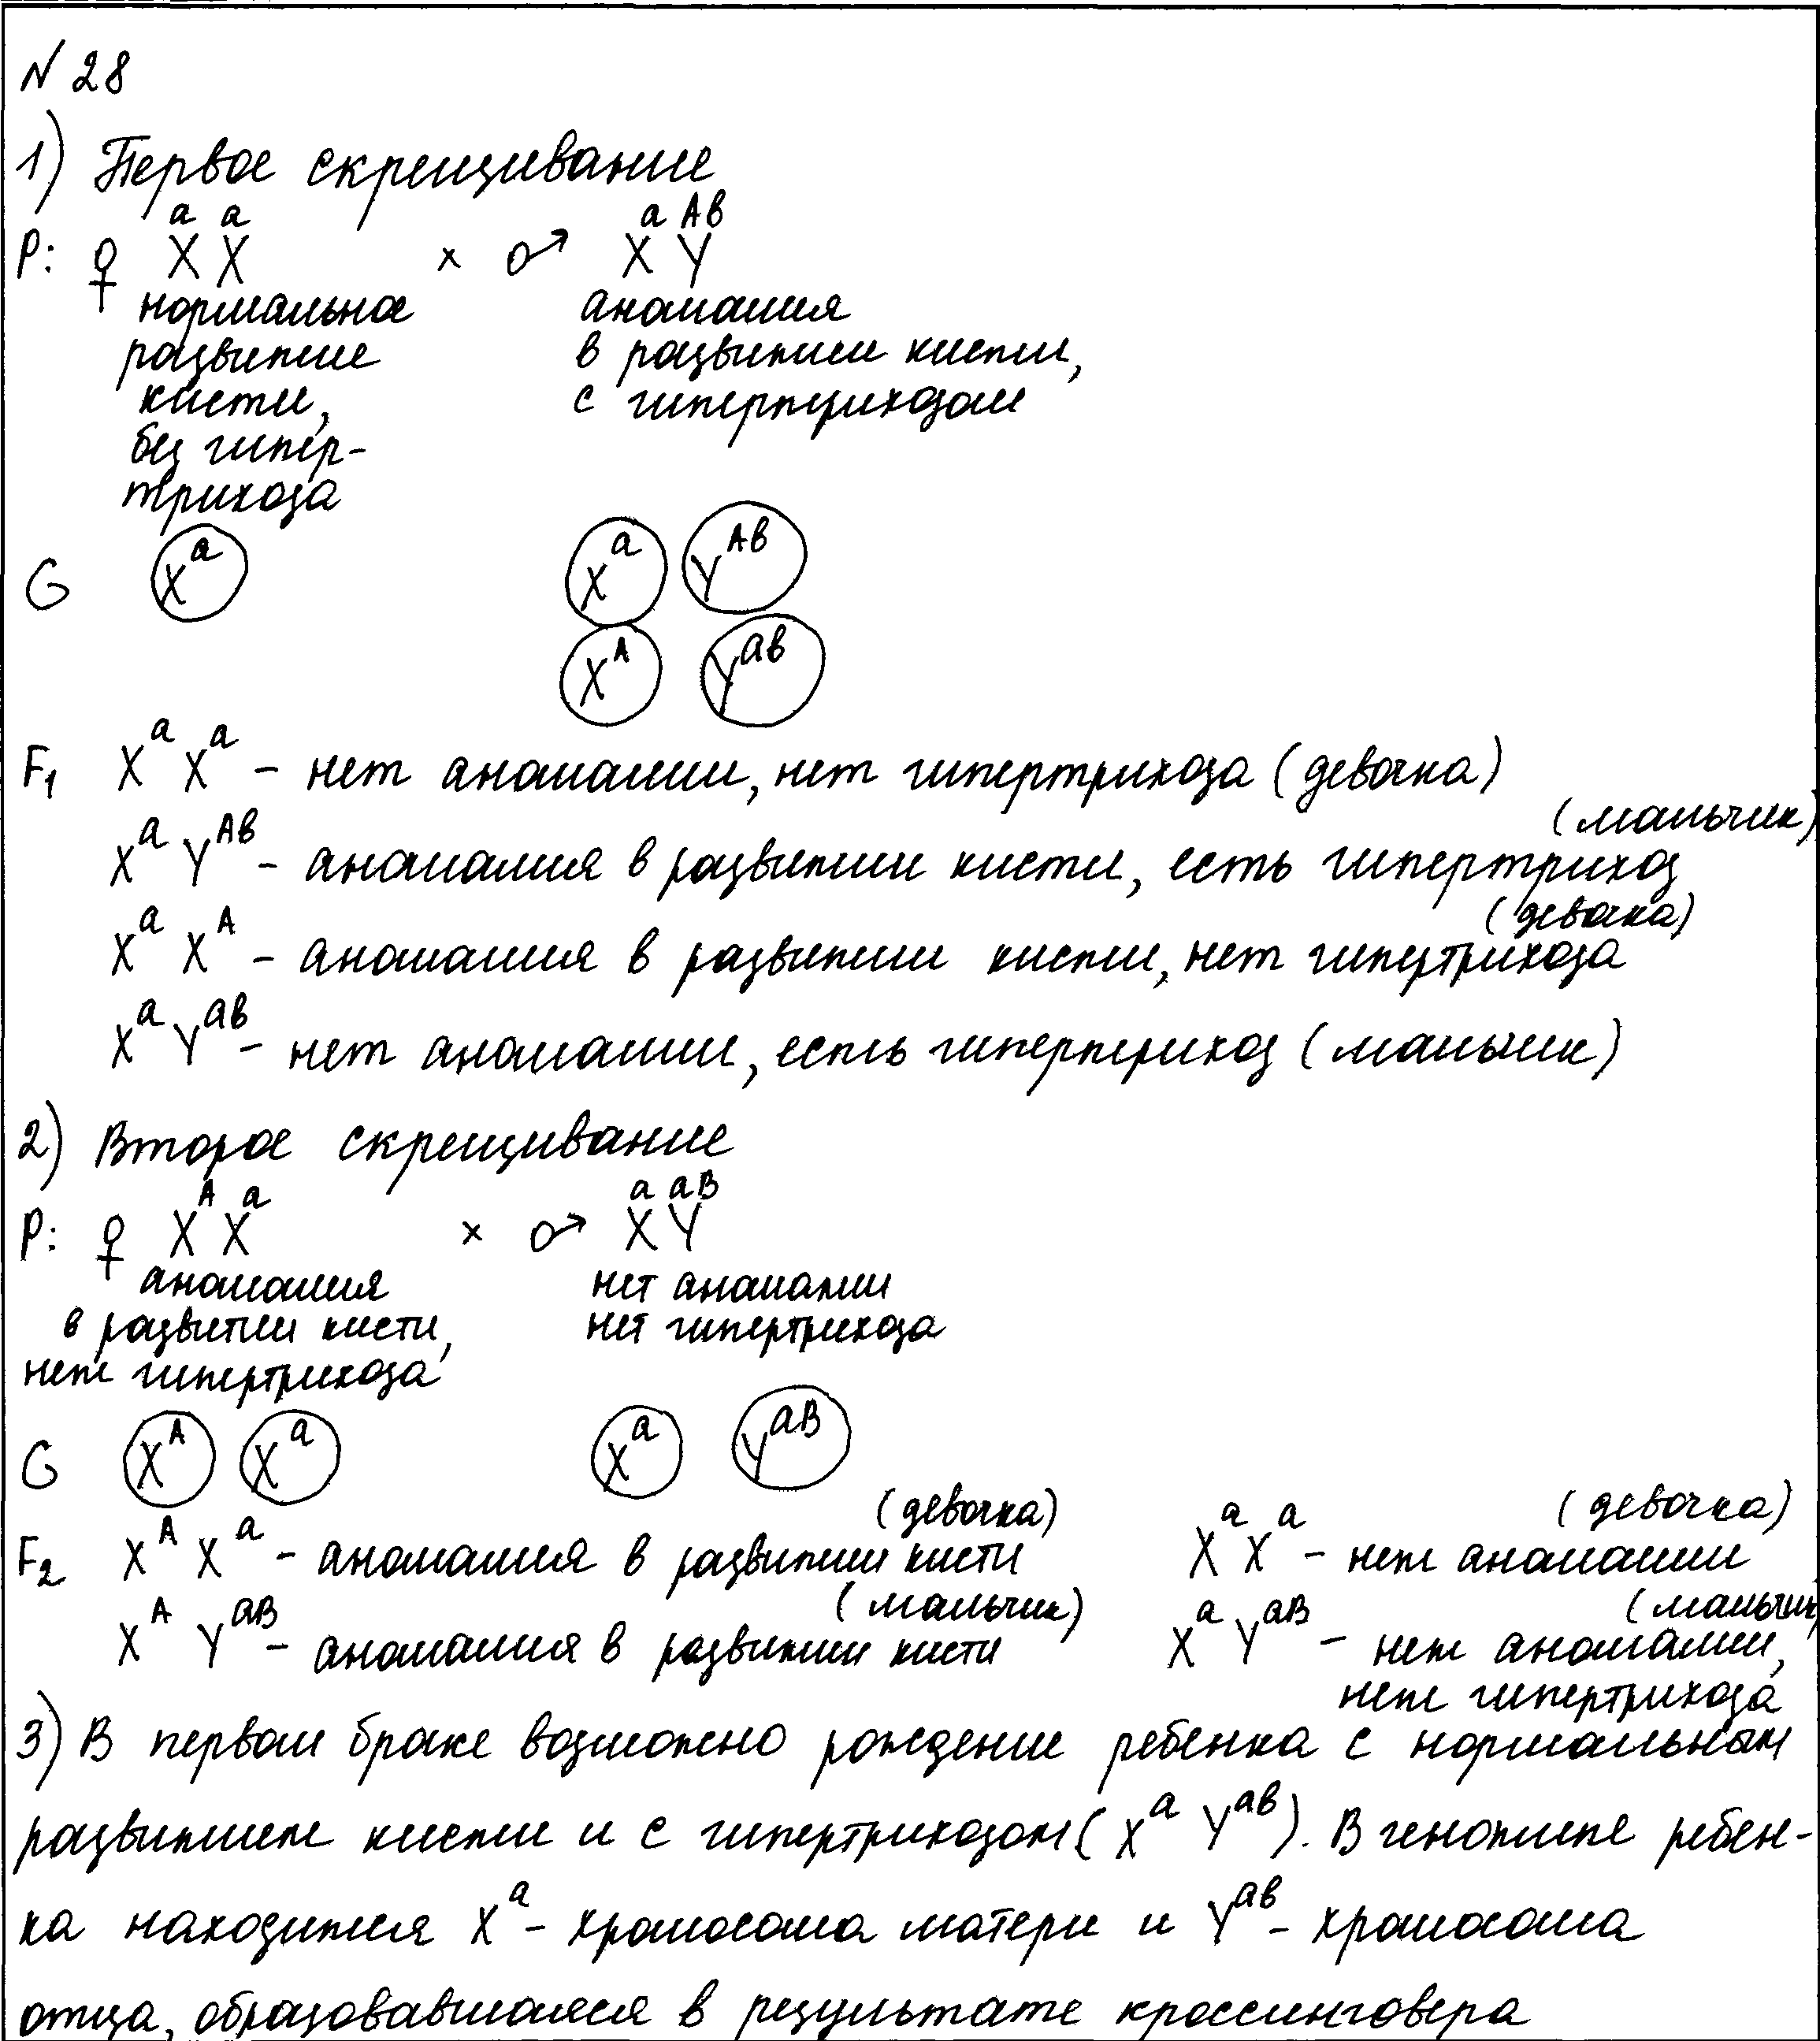 N 28
1) Первое скрещивание
P: ♀ XᵃXᵃ × ♂ XᵃYᴬᵇ
нормальное аномалия
развитие в развитии кисти,
кисти, с гипертрихозом
без гипер-
трихоза
G Xᵃ Xᵃ Yᴬᵇ
Xᴬ Yᵃᵇ
F₁ XᵃXᵃ – нет аномалии, нет гипертрихоза (девочка)
(мальчик)
XᵃYᴬᵇ – аномалия в развитии кисти, есть гипертрихоз
(девочка)
XᵃXᴬ – аномалия в развитии кисти, нет гипертрихоза
XᵃYᵃᵇ – нет аномалии, есть гипертрихоз (мальчик)
2) Второе скрещивание
P: ♀ XᴬXᵃ × ♂ XᵃYᵃᴮ
аномалия нет аномалии
в развитии кисти, нет гипертрихоза
нет гипертрихоза
G Xᴬ Xᵃ Xᵃ Yᵃᴮ
(девочка) (девочка)
F₂ XᴬXᵃ – аномалия в развитии кисти XᵃXᵃ – нет аномалии
(мальчик) (мальчик)
XᴬYᵃᴮ – аномалия в развитии кисти XᵃYᵃᴮ – нет аномалии,
нет гипертрихоза
3) В первом браке возможно рождение ребенка с нормальным
развитием кисти и с гипертрихозом (XᵃYᵃᵇ). В генотипе ребен-
ка находится Xᵃ – хромосома матери и Yᵃᵇ – хромосома
отца, образовавшаяся в результате кроссинговера